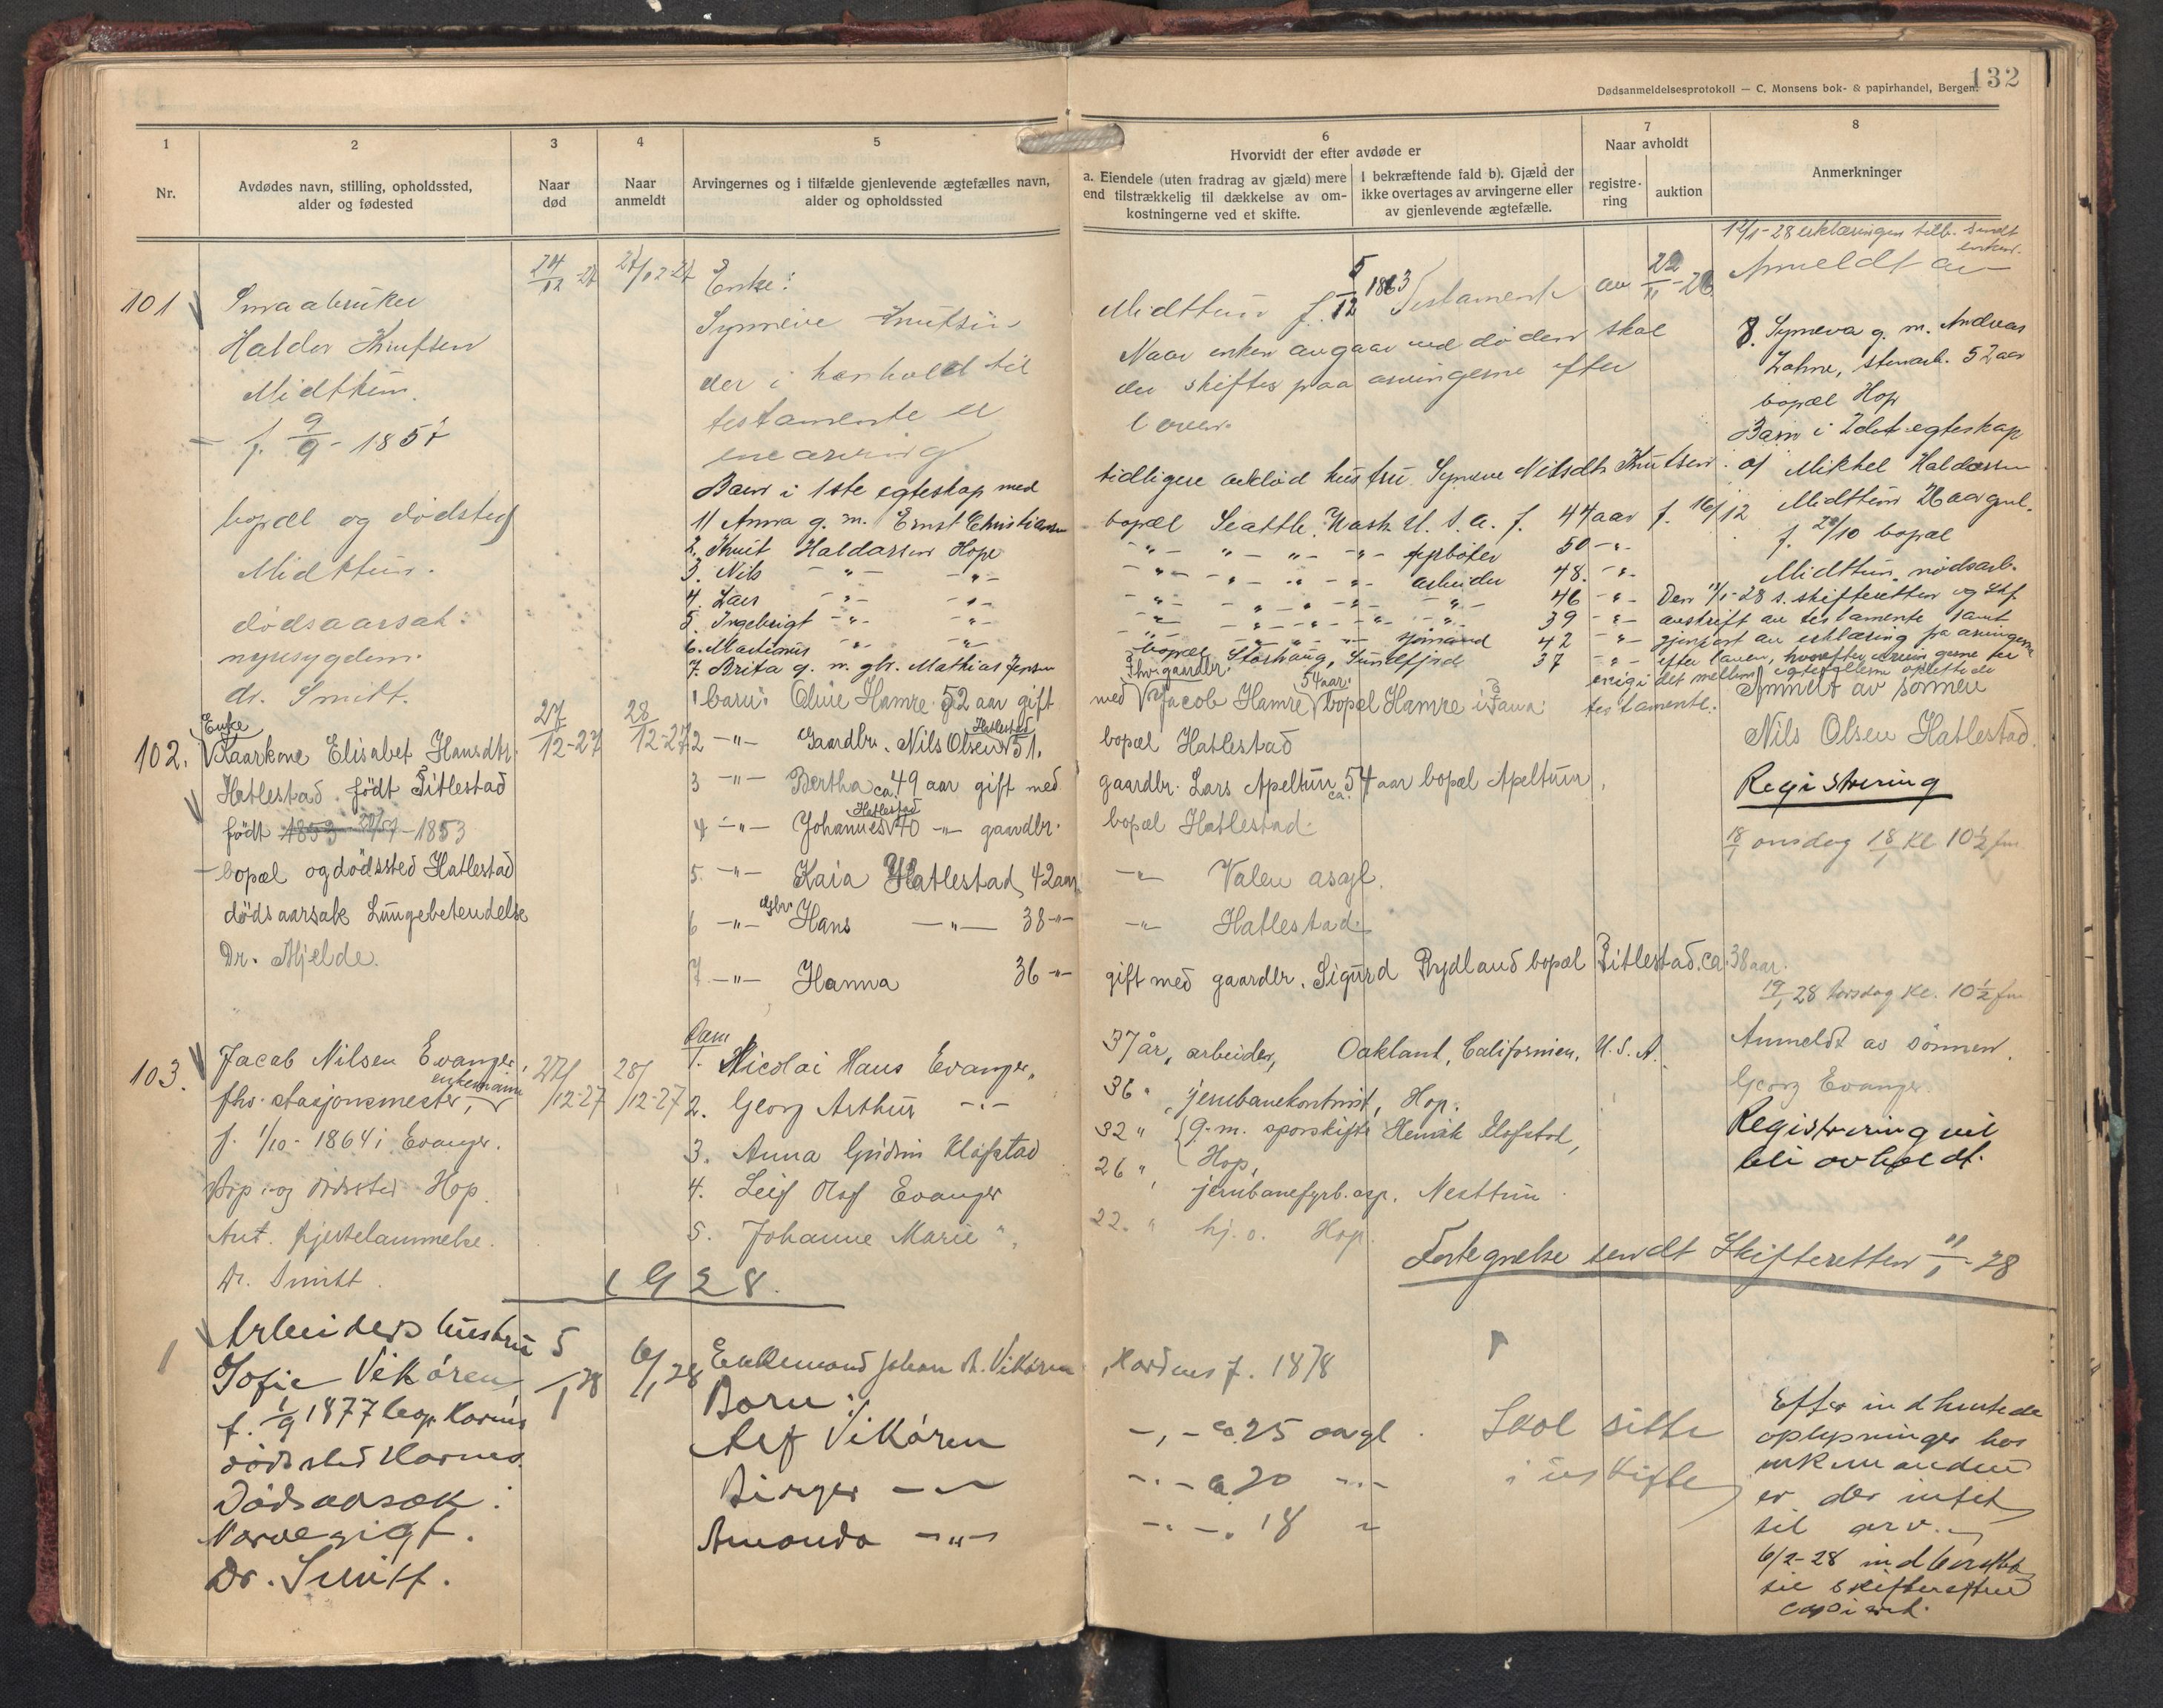 132
Dødsanmeldelsesprotokoll — C. Monsens bok- & papirhandel, Bergen.
1
Nr.
2
Avdødes navn, stilling, opholdssted,
alder og fødested
3
Naar
død
4
Naar
anmeldt
5
Arvingernes og i tilfælde gjenlevende ægtefælles navn,
alder og opholdssted
6
Hvorvidt der efter avdøde er
a. Eiendele (uten fradrag av gjæld) mere
end tilstrækkelig til dækkelse av om-
kostningerne ved et skifte.
I bekræftende fald b). Gjæld der
ikke overtages av arvingerne eller
av gjenlevende ægtefælle.
7
Naar avholdt
registre-
ring
auktion
8
Anmerkninger
101
Smaabruker
Haldor Knutsen
Midttun.
f. 9/9 - 1857
bopæl og dødsted
Midttun.
dødsaarsak:
nyresygdom.
dr. Smitt.
24/12-27
27/12-27
Enke:
Synneve Knutsen
der i henhold til
testamente er
enearving
Barn i 1ste egteskap med
1) Anna g. m. Ernst Christiansen
2. Knut Haldorsen Hope
3. Nils -"- -"-
4. Lars -"- -"-
5. Ingebrigt -"- -"-
6. Martinus -"- -"-
7. Brita g. m. gbr. Mathias Jensen
Midttun f. 5/12 1863 Testamente av 22/11-26
Naar enken avgaar ved døden skal
der skiftes paa arvingerne efter
loven.
tidligere avdød hustru Synneve Nilsdtr Knutsen.
bopæl Seattle Wash. U. S. A. f. 44 aar f. 16/12
-"- -"- -"- -"- fyrbøter 50 -"-
-"- -"- -"- -"- arbeider 48. -"-
-"- -"- -"- -"- -"- 46 -"-
-"- -"- -"- -"- -"- 39 -"-
-"- -"- -"- -"- sjømand 42 -"-
bopæl Storhaug, Sundefjord 37 -"-
12/1-28 erklæringen tilb. sendt
enken.
Anmeldt av
8. Synneva g. m. Andreas
Zahne, stenarb. 52 aar
bopæl Hop
Barn i 2det egteskap
a) Mikkel Haldorsen
Midttun 26 aar gml.
f. 28/10 bopæl
Midttun, nødsarb.
Den 11/1-28 s. skifteretten og Lhf.
avskrift av testamente samt
gjenpart av erklæring fra arvingerne
efter loven, hvorefter arvingerne er
enig i det mellem egtefellerne oprettede
testamente.
102.
Enke
Kaarkone Elisabet Hansdtr.
Hatlestad. født Titlestad
født 1853 - 1853
bopæl og dødssted Hatlestad
dødsaarsak Lungebetendelse
Dr. Mjelde.
27/12-27
28/12-27
1 barn: Oline Hamre 52 aar gift
2 -"- Gaardbr. Nils Olsen Hatlestad 51.
3 -"- Bertha ca. 49 aar gift med
4 -"- Johannes Hatlestad 40 -"- gaardbr.
5. -"- Kaia Hatlestad, 42 aar
6 -"- Gbr. Hans -"- 38 -"-
7. -"- Hanna 36 -"-
med fhv. gaardbr. Jacob Hamre 54 aar. bopel Hamre i Fana.
bopæl Hatlestad
gaardbr. Lars Apeltun ca. 54 aar bopæl Apeltun
bopæl Hatlestad.
-"- Valen asyl.
-"- Hatlestad.
gift med gaardbr. Sigurd Rydland bopæl Titlestad. ca. 38 aar.
Anmeldt av sønnen
Nils Olsen Hatlestad.
Registrering
18/1 onsdag 18/1 kl 10 1/2 fm
103.
Jacob Nilsen Evanger,
fhv. stasjonsmester, enkemann
f. 1/10 - 1864 i Evanger.
Bop. og dødssted Hop.
Ant. hjertelammelse.
Dr. Smitt.
27/12-27
28/12-27
Barn
1. Nicolai Hans Evanger,
2. Georg Arthur -"-
3. Anna Gudrun Klofstad
4. Leif Olaf Evanger
5. Johanne Marie "
37 år, arbeider, Oakland, Californien, U. S. A.
36 " jernbanekontorist, Hop.
32 " g. m. sporskifter Henrik Klofstad,
Hop,
26 " jernbanefyrb. asp. Nesttun
22. " hj. o. Hop.
19/1 28 torsdag kl. 10 1/2 fm
Anmeldt av sønnen.
Georg Evanger.
Registrering vil
bli avholdt.
Fortegnelse sendt Skifteretten 11/1-28
1928.
1
Arbeiders hustru
Sofie Vikøren
f. 1/9 1877 bop. Hornes
dødssted Hornes.
Dødsaarsak:
Navlegigt.
Dr. Smitt.
5/1 28
6/1 28
Enkemand Johan A. Vikøren
Born:
Alf Vikøren
Birger -"-
Amanda -"-
Hordnes f. 1878
-"- ca. 25 aar gl.
-"- ca. 20 -"-
-"- 18 "
Skal sitte
i uskifte
Efter indhentede
oplysninger hos
enkemanden
er der intet
til arv.
6/2-28 indberettet
til skifteretten